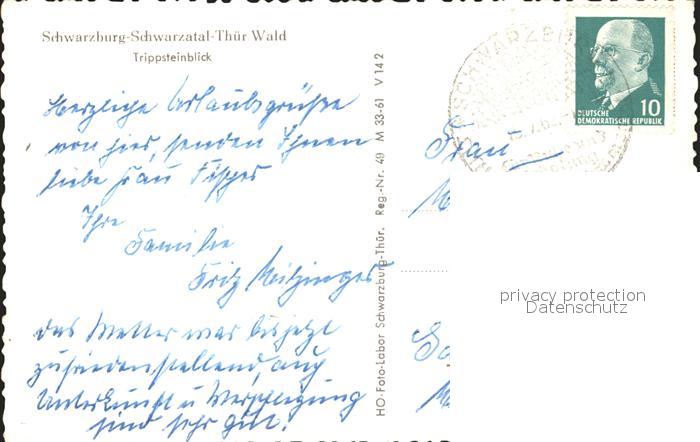 Schwarzburg-Schwarzatal-Thür Wald
Trippsteinblick
Herzliche Urlaubsgrüße
von hier, senden Ihnen
liebe Frau Fischer
Ihre
Familie
Fritz
das Wetter war bis jetzt
zufriedenstellend, auch
Unterkunft u Verpflegung
sind sehr gut.
HO-Foto-Labor Schwarzburg-Thür. Reg.-Nr. 49 M 33-61 V 142
SCHWARZBURG
DEUTSCHE
DEMOKRATISCHE REPUBLIK
10
Frau
privacy protection
Datenschutz